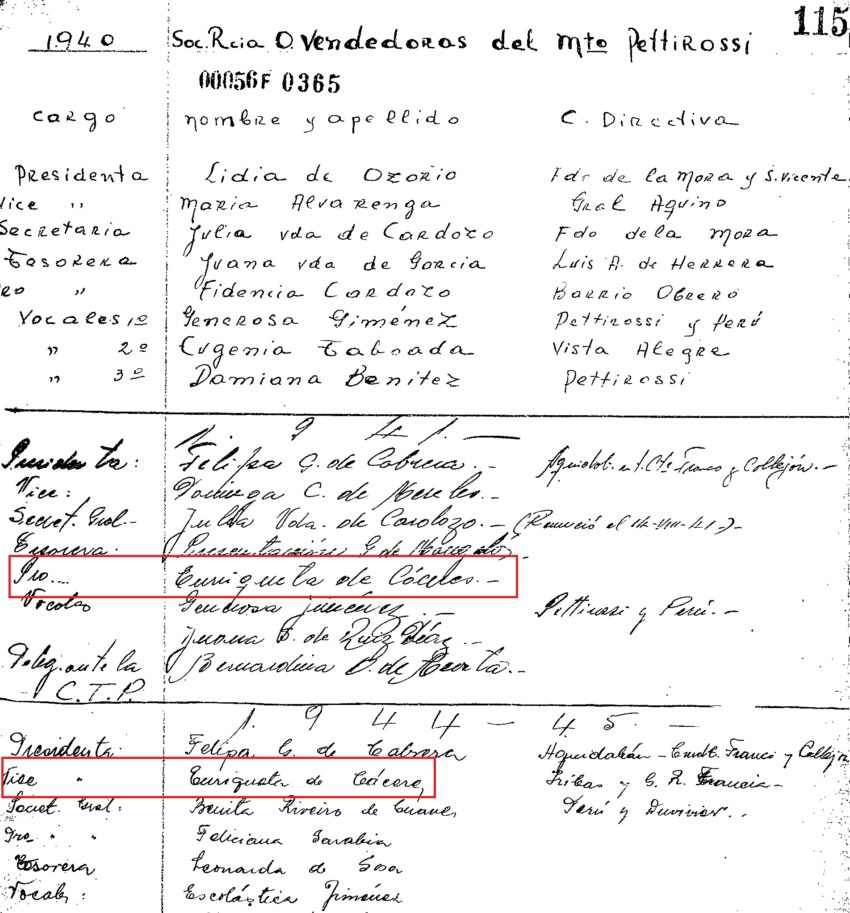 115
1940 Soc. Rcia O. Vendedoras del Mto Pettirossi
00056F 0365
Cargo nombre y apellido C. Directiva
Presidenta Lidia de Ozorio Fdo de la Mora y S. Vicente
Vice " Maria Alvarenga Gral Aquino
Secretaria Julia vda de Cardozo Fdo de la Mora
Tesorera Juana vda de Garcia Luis A. de Herrera
Pro " Fidencia Cardozo Barrio Obrero
Vocales 1º Generosa Giménez Pettirossi y Perú
" 2º Eugenia Taboada Vista Alegre
" 3º Damiana Benitez Pettirossi
1. 9 4 1. —
Presidenta: Felipa G. de Cabrera. - Franco y Callejón. -
Vice: Dominga C. de Meneles. -
Secret. Gral. - Julia Vda. de Cardozo. - (Renunció el 14-VIII-41) -
Tesorera: Presentación G. de
Pro.... Enriqueta de Cáceres. -
Vocales Generosa Jiménez. - Pettirossi y Perú. -
Juana B. de Ruiz Díaz. -
Deleg. ante la Bernardina D. de -
C.T.P.
1. 9 4 4 - 4 5. -
Presidenta: Felipa G. de Cabrera Aquidabán - Comdt. Franco y Callejón
Vice " Enriqueta de Cácere, Tribas y G. R. Francia -
Secret. Gral: Benita Riveiro de Perú y Duvivier. .
Pro " " Feliciana Sarabia
Tesorera Leonarda de Sosa
Vocales: Escolástica Jimenez